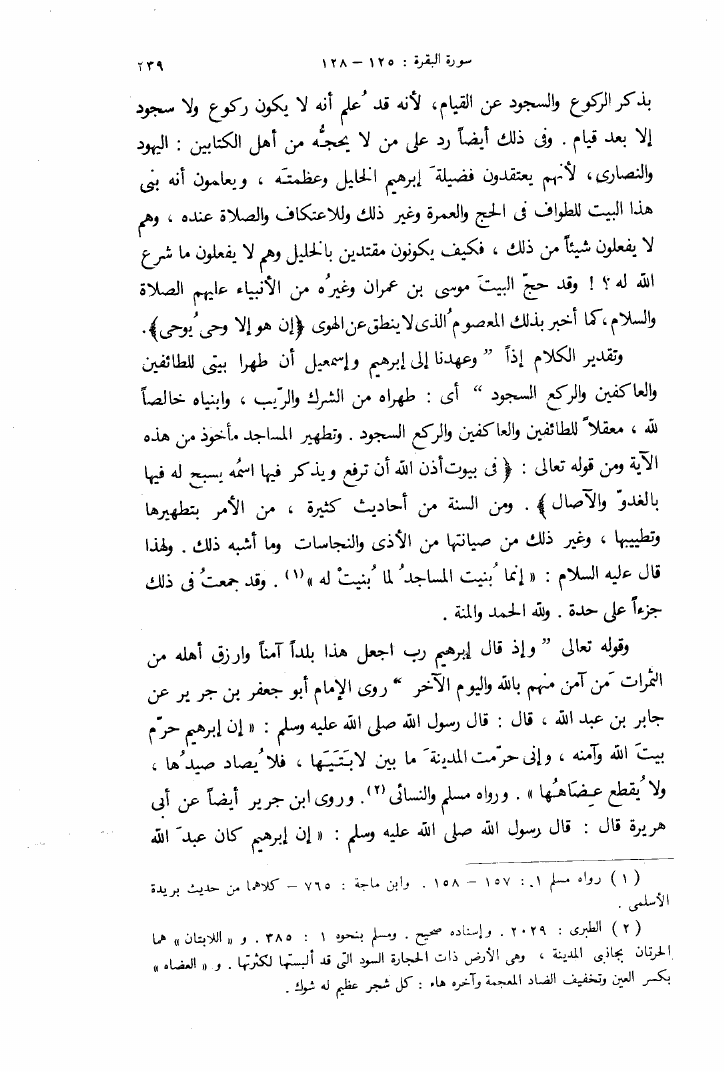 سورة البقرة : ١٢٥ – ١٢٨
٢٣٩
بذكر الركوع والسجود عن القيام، لأنه قد عُلم أنه لا يكون ركوع ولا سجود
إلا بعد قيام . وفى ذلك أيضاً رد على من لا يحجُّه من أهل الكتابين : اليهود
والنصارى، لأنهم يعتقدون فضيلةَ إبرهيم الخليل وعظمتَه ، ويعلمون أنه بنى
هذا البيت للطواف فى الحج والعمرة وغير ذلك وللاعتكاف والصلاة عنده ، وهم
لا يفعلون شيئاً من ذلك ، فكيف يكونون مقتدين بالخليل وهم لا يفعلون ما شرع
الله له ؟ ! وقد حجّ البيتَ موسى بن عمران وغيرُه من الأنبياء عليهم الصلاة
والسلام، كما أخبر بذلك المعصومُ الذى لا ينطق عن الهوى ﴿إن هو إلا وحى يُوحى﴾.
وتقدير الكلام إذاً ” وعهدنا إلى إبرهيم وإسمعيل أن طهرا بيتى للطائفين
والعاكفين والركع السجود “ أى : طهراه من الشرك والرّيب ، وابنياه خالصاً
لله ، معقلاً للطائفين والعاكفين والركع السجود . وتطهير المساجد مأخوذ من هذه
الآية ومن قوله تعالى : ﴿ فى بيوت أذن الله أن ترفع ويذكر فيها اسمُه يسبح له فيها
بالغدوّ والآصال ﴾ . ومن السنة من أحاديث كثيرة ، من الأمر بتطهيرها
وتطييبها ، وغير ذلك من صيانتها من الأذى والنجاسات وما أشبه ذلك . ولهذا
قال عليه السلام : « إنما بُنيت المساجدُ لما بُنيتْ له »(١) . وقد جمعتُ فى ذلك
جزءاً على حدة . ولله الحمد والمنة .
وقوله تعالى ” وإذ قال إبرهيم رب اجعل هذا بلداً آمناً وارزق أهله من
الثمرات مَن آمن منهم بالله واليوم الآخر “ روى الإمام أبو جعفر بن جرير عن
جابر بن عبد الله ، قال : قال رسول الله صلى الله عليه وسلم : « إن إبرهيم حرّم
بيتَ الله وآمنه ، وإنى حرّمت المدينةَ ما بين لابَتَيَها ، فلا يُصاد صيدُها ،
ولا يُقطع عِضَاهُها » . ورواه مسلم والنسائى(٢). وروى ابن جرير أيضاً عن أبى
هريرة قال : قال رسول الله صلى الله عليه وسلم : « إن إبرهيم كان عبدَ الله
( ١ ) رواه مسلم ١ : ١٥٧ – ١٥٨ . وابن ماجة : ٧٦٥ – كلاهما من حديث بريدة
الأسلمى .
( ٢ ) الطبرى : ٢٠٢٩ . وإسناده صحيح . ومسلم بنحوه ١ : ٣٨٥ . و « اللابتان » هما
الحرتان بجانبى المدينة ، وهى الأرض ذات الحجارة السود التى قد ألبستها لكثرتها . و « العضاه »
بكسر العين وتخفيف الضاد المعجمة وآخره هاء : كل شجر عظيم له شوك .